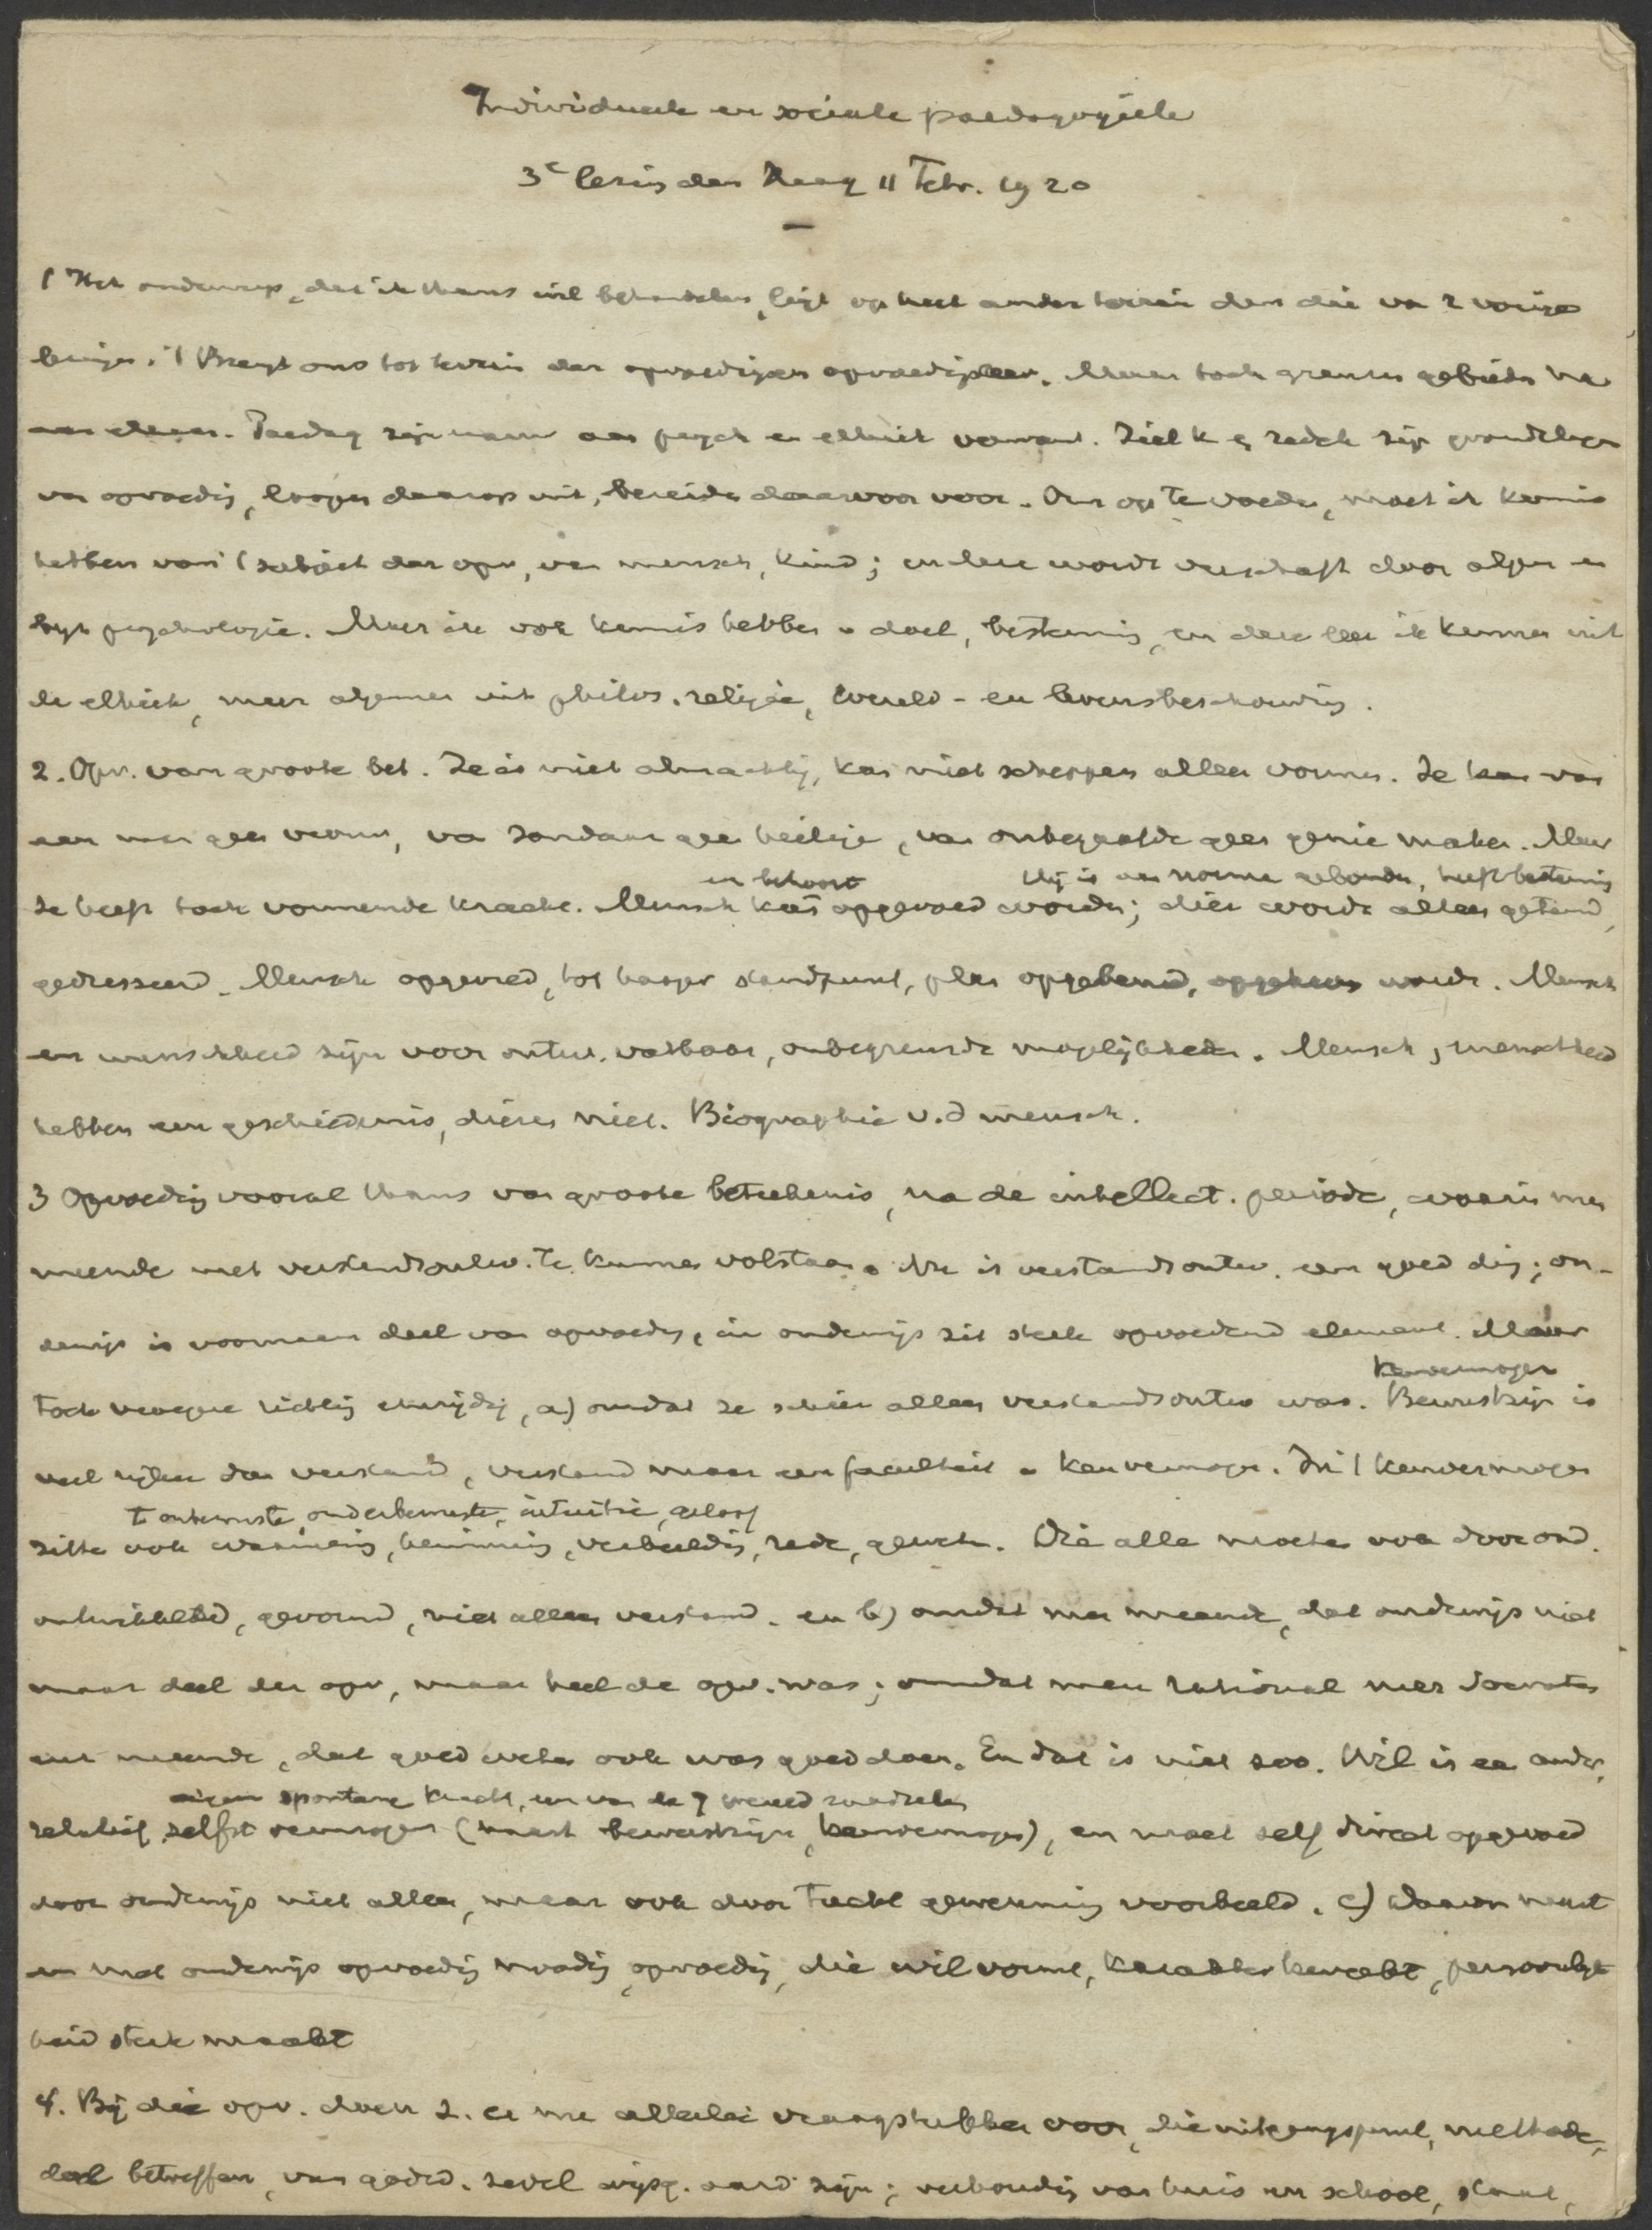 Individueele en sociale paedagogiek
3e lezing den Haag 11 Febr. 1920
1 Het onderwerp, dat ik thans wil behandelen, ligt op heel ander terrein dan die van 2 vorige
lezingen. 't Brengt ons tot terrein der opvoeding en opvoedingsleer. Maar toch grenzen gebieden na
aan elkaar. Paedag zijn nauw aan psych en ethiek verwant. Ziel k en zedel zijn grondslagen
van opvoeding, loopen daarop uit, bereiden daarvoor voor. Om op te voeden, moet ik kennis
hebben van 't subject der opv, van mensch, kind; en deze wordt verschaft door algem en
psychologie. Maar ik ook kennis hebben v doel, bestemming, en deze leer ik kennen uit
de ethiek, meer algemeen uit philos. religie, wereld- en levensbeschouwing.
2. Opv. van groote bet. Ze is niet almachtig, kan niet scheppen alleen vormen. Ze kan van
een man geen vrouw, van zondaar geen heilige, van onbegaafde geen genie maken. Maar
en behoort Hij is aan norme gebonden, heeft bestemming
ze heeft toch vormende kracht. Mensch kan opgevoed worden; dier wordt alleen getemd,
gedresseerd. Mensch opgevoed, tot hooger standpunt, plan opgebeurd, opgeheven wordt. Mensch
en menschheid zijn voor ontw. vatbaar, onbegrensde mogelijkheden. Mensch, menschheid
hebben een geschiedenis, dieren niet. Biographie v.d mensch.
3 Opvoeding vooral thans van groote beteekenis, na de intellect. periode, waarin men
meende met verstandsontw. te kunnen volstaan. Nu is verstandsontw. een goed ding; on-
derwijs is voornaam deel van opvoeding, in onderwijs zit sterk opvoedend element. Maar
Kenvermogen
toch vroegere richting eenzijdig, a) omdat ze schier alleen verstandsontw was. Bewustzijn is
veel rijker dan verstand, verstand maar een faculteit v kenvermogen. In 't kenvermogen
't onbewuste, onderbewuste, intuitie, geloof
zitten ook waarneming, herinnering, verbeelding, rede, geweten. Die alle moeten ook door ond.
ontwikkeld, gevormd, niet alleen verstand. en b) omdat men meende, dat onderwijs niet
maar deel der opv, maar heel de opv. was; omdat men rational met Socrates
meende, dat goed weten ook was goed doen. En dat is niet zoo. Wil is een ander,
eigen spontane kracht, een van de 7 wereldraadselen
relatief zelfst vermogen (naast bewustzijn, kenvermogen), en moet zelf direct opgevoed
door onderwijs niet alleen, maar ook door tucht gewenning voorbeeld. c) Daarom naast
en met onderwijs opvoeding noodig, opvoeding, die wil vormt, karakter kweekt, persoonlijk-
heid sterk maakt
4. Bij die opv. doen z. er nu allerlei vraagstukken voor, die uitgangspunt, methode,
doel betreffen, van godsd. zedel wijsg. aard zijn; verhouding van huis en school, staat,